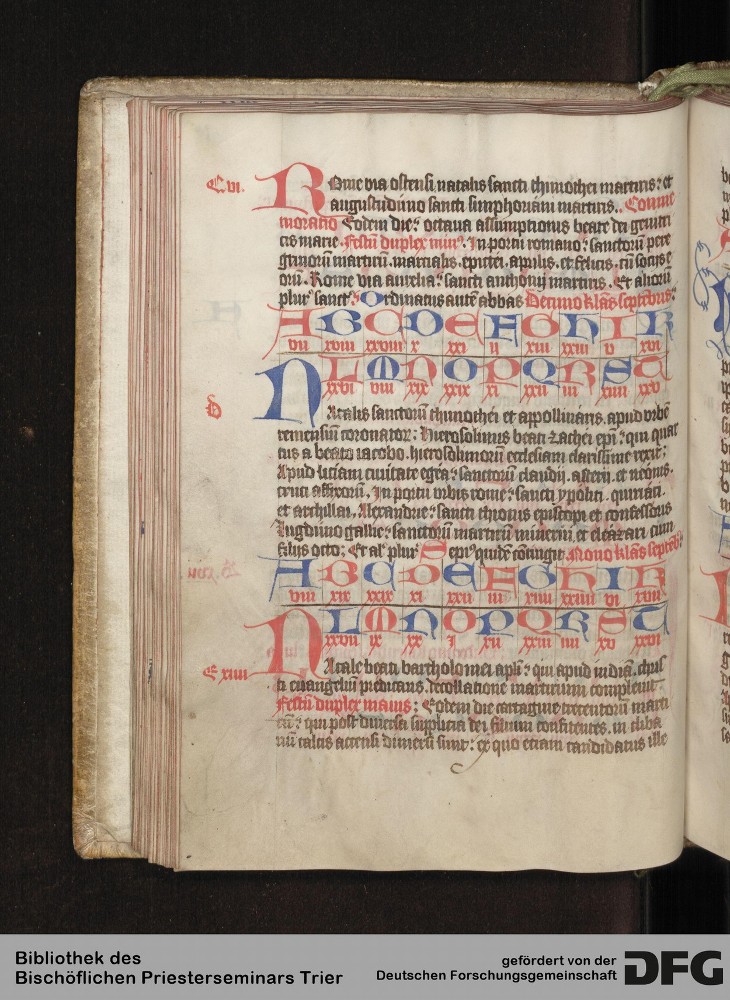 C vi.
Rome via ostensi natalis sancti thimothei martiris : et
augustiduno sancti simphoriani martiris .. Comme
moratio Eodem die : octava assumptionis beate dei genitri
cis marie . Festū duplex min⁹ . In portu romano : sanctorū pere
grinorū martirū . marcialis . epictei . aprilis . et felicis . cū sociis e
orū . Rome via aurelia : sancti anthonij martiris . Et aliorū
plur sanct : Ordinatus autē abbas Decimo klās septēbris :
A B C D E F G H I K
vii xviii xxviii x xxi ii xiii xxiii v xvi
L M N O P Q R S T
xxvi viii xix xxix xi xxii iii xiiii xxv
d
Natalis sanctorū thimothei et appollinaris . apud urbē
remensiū coronator : Hierosolimis beati zachei epi : qui quar
tus a beato iacobo . hierosolimorū ecclesiam clarissime rexit ;
Apud liciam civitate egea : sanctorū claudij . asterij . et neonis .
cruci affixorū . In portu urbis rome : sancti ypoliti . quiriaci .
et archillai . Alexandrie : sancti thionis episcopi et confessoris
lugduno gallie : sanctorū martirū minervi et eleazari cum
filijs octo ; Et al plur Sepi⁹ quidē contingit . Nono klās septēb :
A B C D E F G H I K
viii xix xxix xi xxii iii xiiii xxiiii vi xvii
L M N O P Q R S T
xxvii ix xx i xii xxiii iiii xv xxvi
E xiiii
Natale beati bartholomei apli : qui apud indiā . chris
ti evangeliū predicans . decollatione martirium complevit
Festū duplex maius ; Eodem die cartagine trecentorū marti
rū : qui post diversa supplicia dei filium confitentes . in cliba
nū calcis accensi dimersi sunt : ex quo etiam candidatus ille
Bibliothek des
Bischöflichen Priesterseminars Trier
gefördert von der
Deutschen Forschungsgemeinschaft
DFG